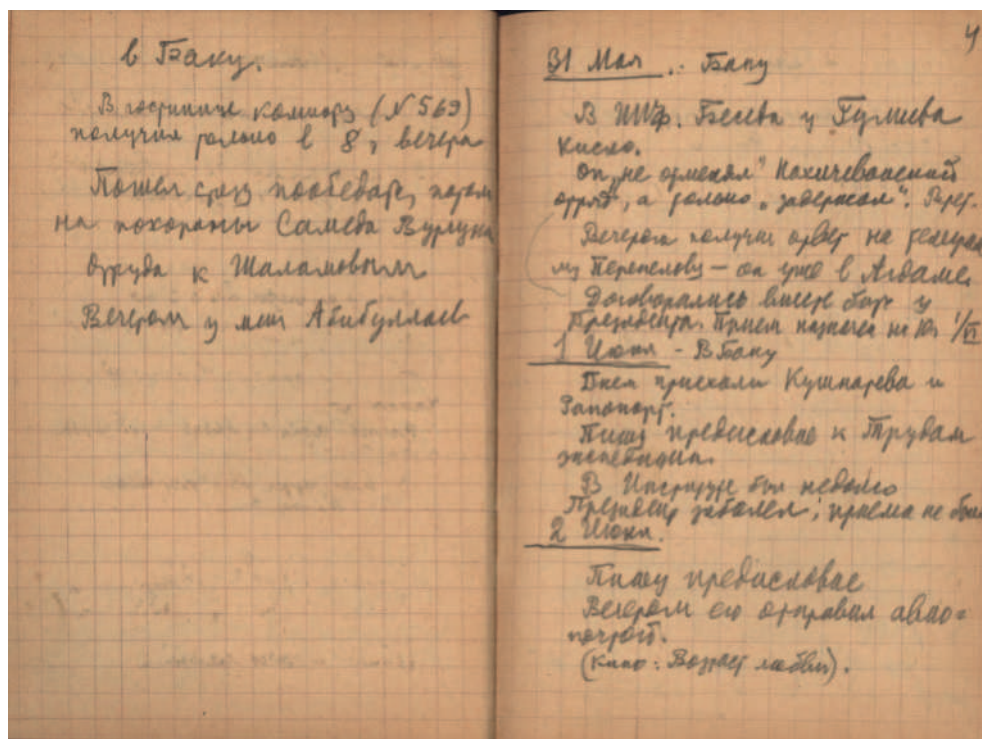 в Баку.
В гостинице комнату (№ 569)
получил только в 8, вечера
Пошел сразу пообедать, потом
на похороны Самеда Вургуна
Оттуда к Шаламовым
Вечером у меня Абибуллаев
4
31 Мая Баку
В ИИФ. Беседа у Гулиева
Кисло.
Он "не отменял" Нахичеванский
отряд, а только "задержал".
Вечером получил ответ на телеграм
му Перепелову — он уже в Агдаме.
Договорились вместе быть у
Президента. Прием назначен на 10ч 1/VI
1 Июня - В Баку
Днем приехали Кушнарева и
Рапопорт.
Пишу предисловие к Трудам
экспедиции.
В Институте был недолго
Президент заболел, приема не был
2 Июня.
Пишу предисловие
Вечером его отправил авиа=
почтой.
(Кино: Возраст любви).